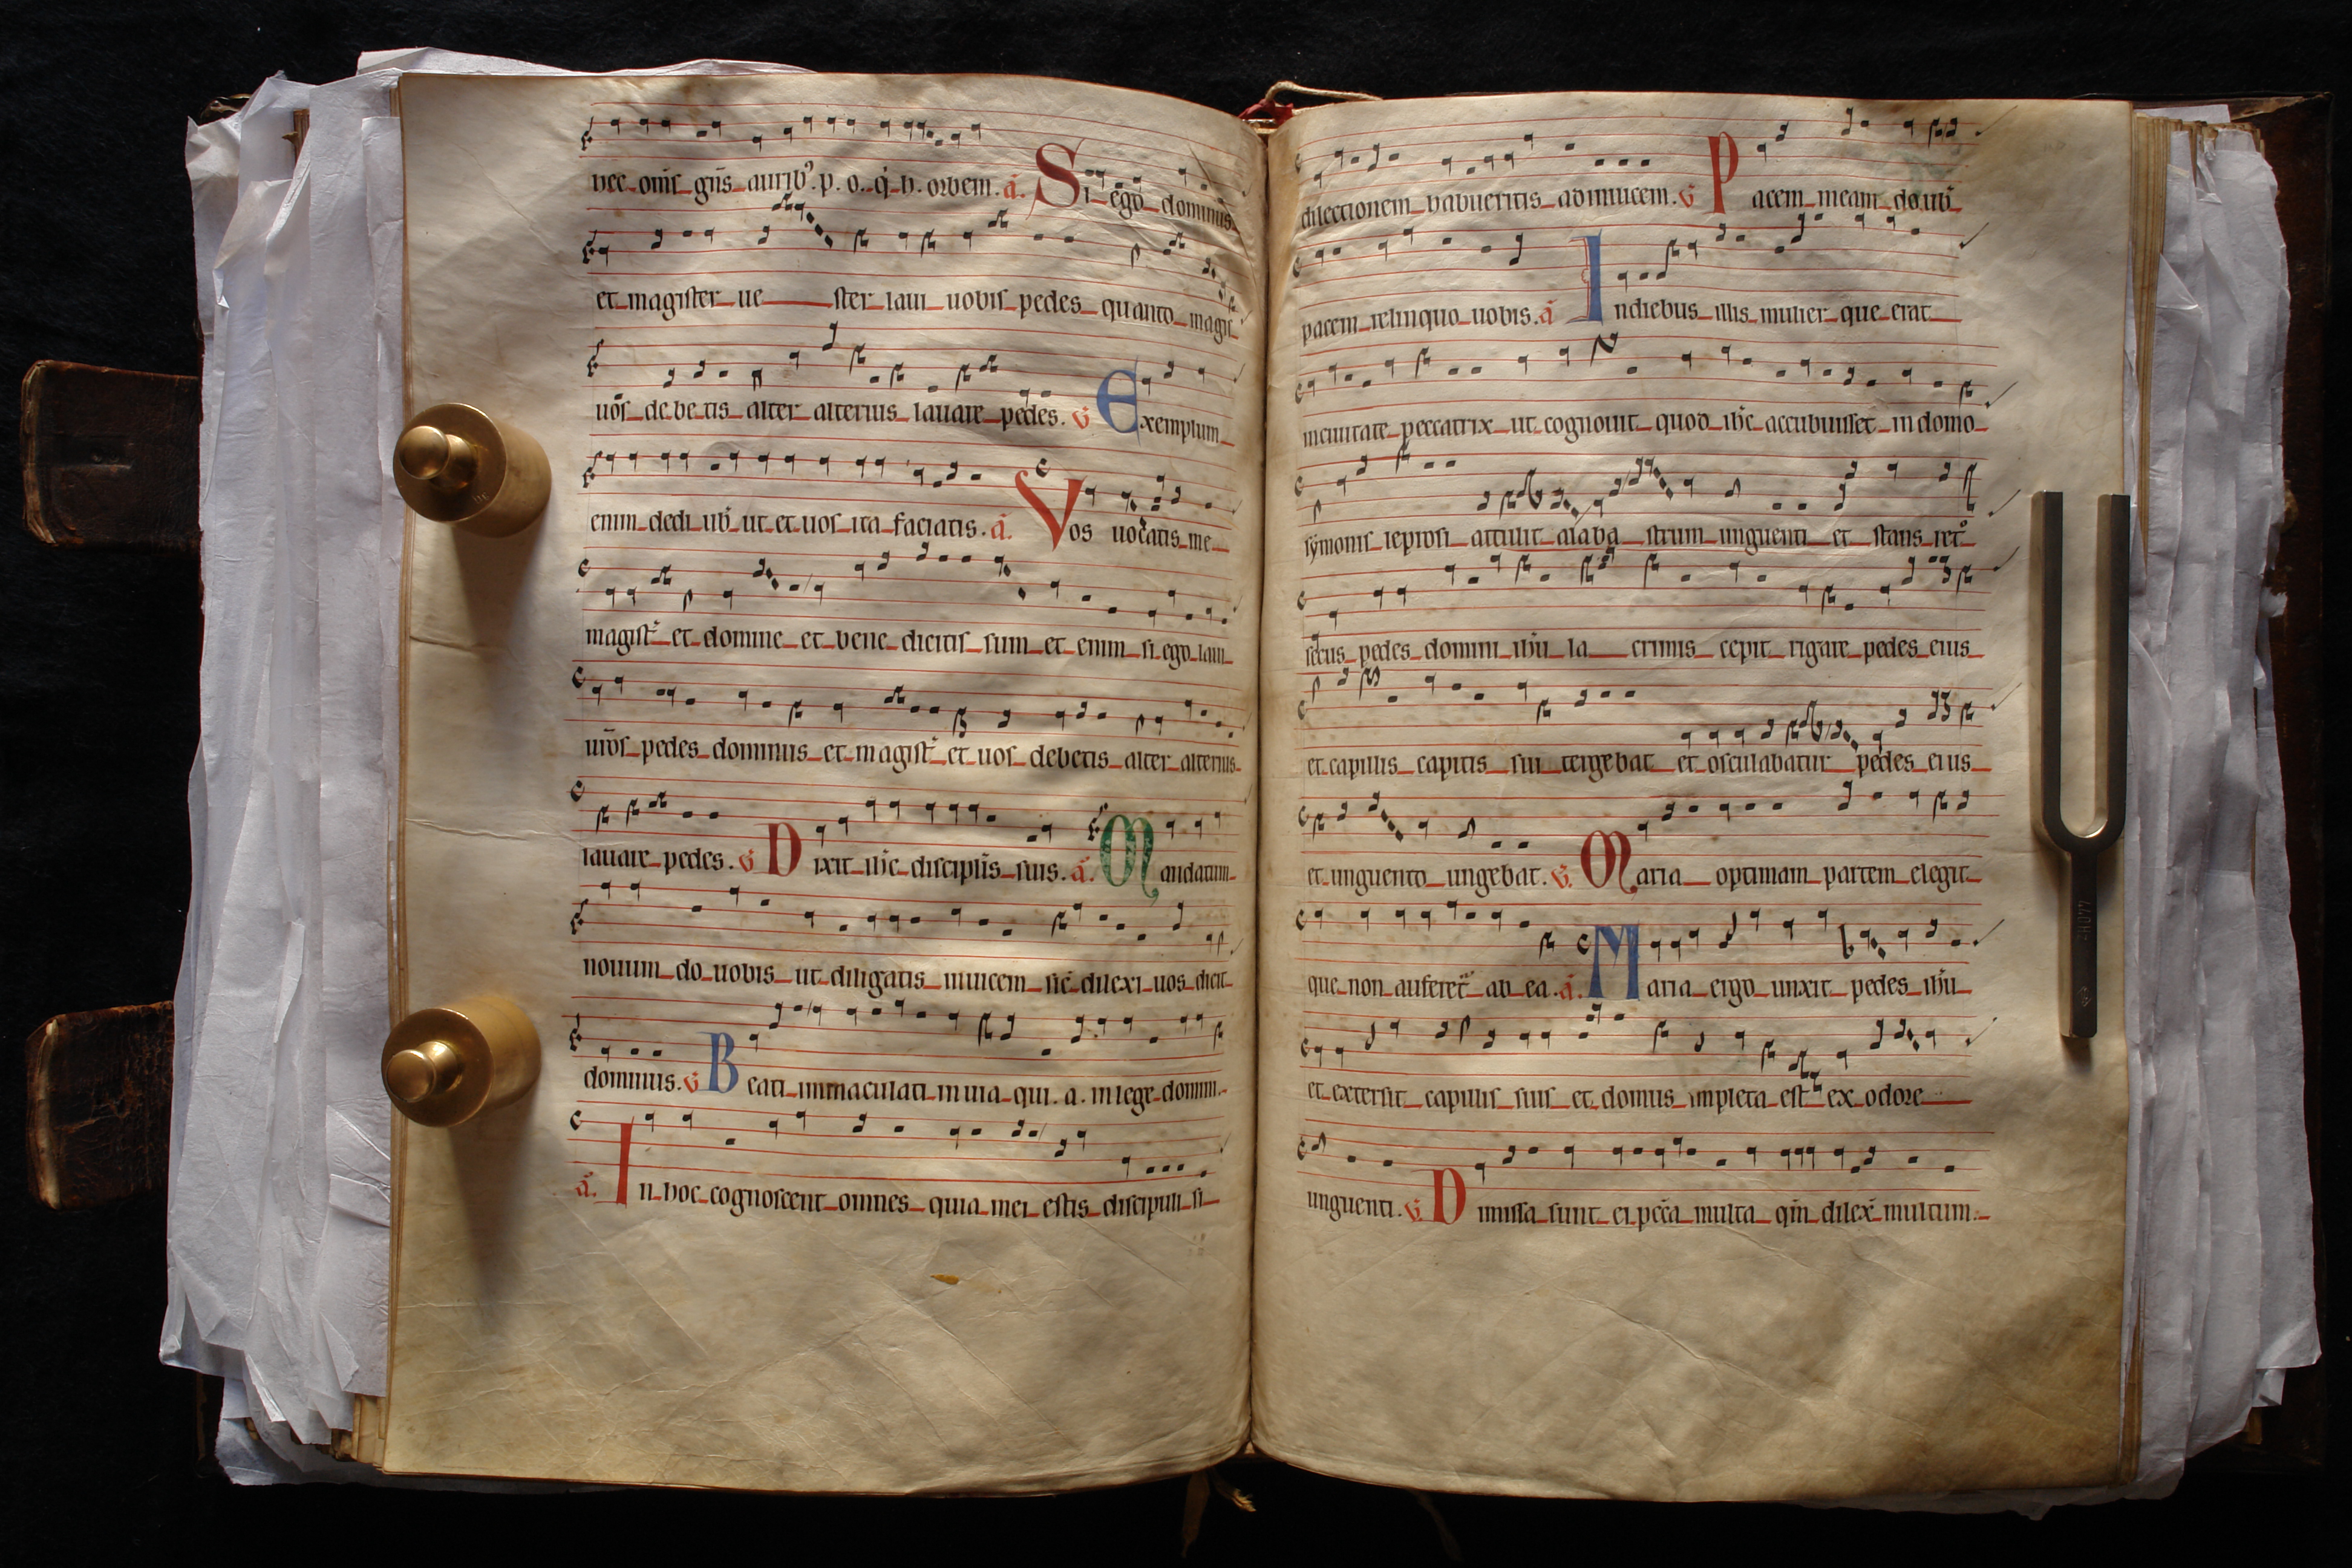 hec om̄s gn̄s aurib⁹. p. o. q. h. orbem. a. Si ego dominus
et magister ue ster laui uobis pedes quanto magis
uos debetis alter alterius lauare pedes. v̄ Exemplum
enim dedi uob̄ ut et uos ita faciatis. a. Vos uocatis me
magist̄ et domine et bene dicitis sum et enim si ego laui
ur̄os pedes dominus et magist̄ et uos debetis alter alterius
lauare pedes. v̄ Dixit ih̄c discipul̄is suis. a. Mandatum
nouum do uobis ut diligatis inuicem sic̄ dilexi uos dicit
dominus. v̄ Beati immaculati in uia qui. a. in lege domini.
a. In hoc cognoscent omnes quia mei estis discipuli si
dilectionem habueritis adinuicem. v̄ Pacem meam do uob̄
pacem relinquo uobis. a In diebus illis mulier que erat
in ciuitate peccatrix ut cognouit quod ih̄c accubuisset in domo
symonis leprosi attulit alaba strum unguenti et stans ret°
secus pedes domini ih̄u la crimis cepit rigare pedes eius
et capillis capitis sui tergebat et osculabatur pedes eius
et unguento ungebat. v̄. Maria optimam partem elegit
que non auferet̄ ab ea. a. Maria ergo unxit pedes ih̄u
et extersit capillis suis et domus impleta est ex odore
unguenti. v̄. Dimissa sunt ei pec̄c̄a multa qm̄ dilex̄ multum.
440Hz